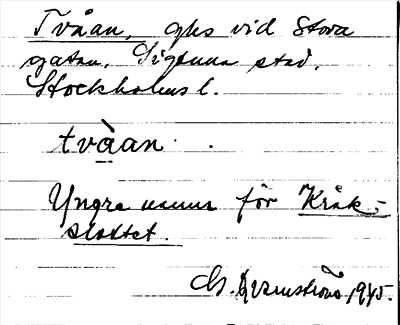 Tvåan, ghs vid Stora
gatan. Sigtuna stad.
Stockholms l.
tvàan.
Yngre namn för Kråk-
slottet.
1945.